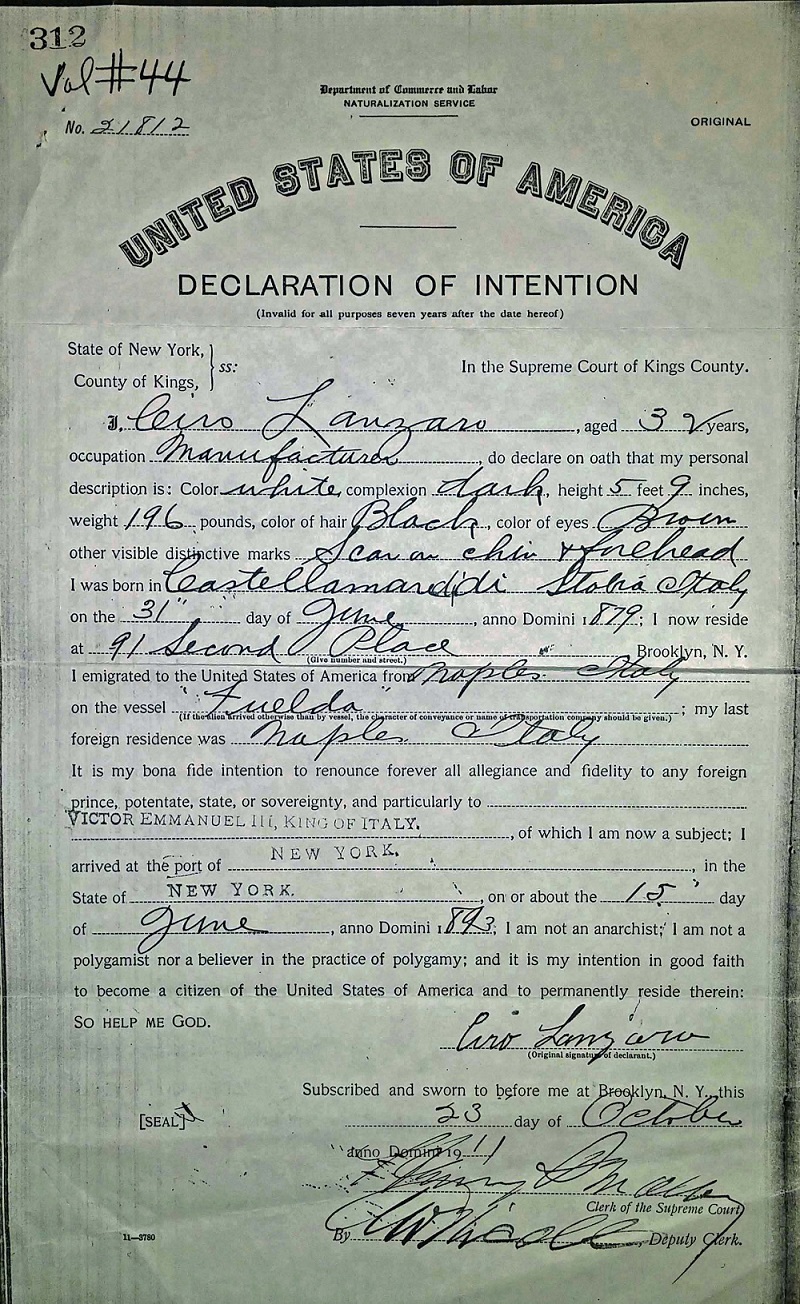 312
Vol #44
Department of Commerce and Labor
NATURALIZATION SERVICE
No. 21812
ORIGINAL
UNITED STATES OF AMERICA
DECLARATION OF INTENTION
(Invalid for all purposes seven years after the date hereof)
State of New York,
County of Kings, ss: In the Supreme Court of Kings County.
I, Ciro Lanzaro, aged 32 years,
occupation Manufacturer, do declare on oath that my personal
description is: Color white, complexion dark, height 5 feet 9 inches,
weight 196 pounds, color of hair Black, color of eyes Brown
other visible distinctive marks Scar on chin & forehead
I was born in Castellamare di Stabia Italy
on the 31" day of June, anno Domini 1879; I now reside
at 91 Second Place Brooklyn, N. Y.
(Give number and street.)
I emigrated to the United States of America from Naples Italy
on the vessel "Fuelda"; my last
(If the alien arrived otherwise than by vessel, the character of conveyance or name of transportation company should be given.)
foreign residence was Naples Italy
It is my bona fide intention to renounce forever all allegiance and fidelity to any foreign
prince, potentate, state, or sovereignty, and particularly to
VICTOR EMMANUEL III, KING OF ITALY, of which I am now a subject; I
arrived at the port of NEW YORK., in the
State of NEW YORK., on or about the 15 day
of June, anno Domini 1893; I am not an anarchist; I am not a
polygamist nor a believer in the practice of polygamy; and it is my intention in good faith
to become a citizen of the United States of America and to permanently reside therein:
SO HELP ME GOD.
Ciro Lanzaro
(Original signature of declarant.)
Subscribed and sworn to before me at Brooklyn, N. Y., this
[SEAL] 23 day of October
anno Domini 1911
Clerk of the Supreme Court
By Deputy Clerk.
11—3780